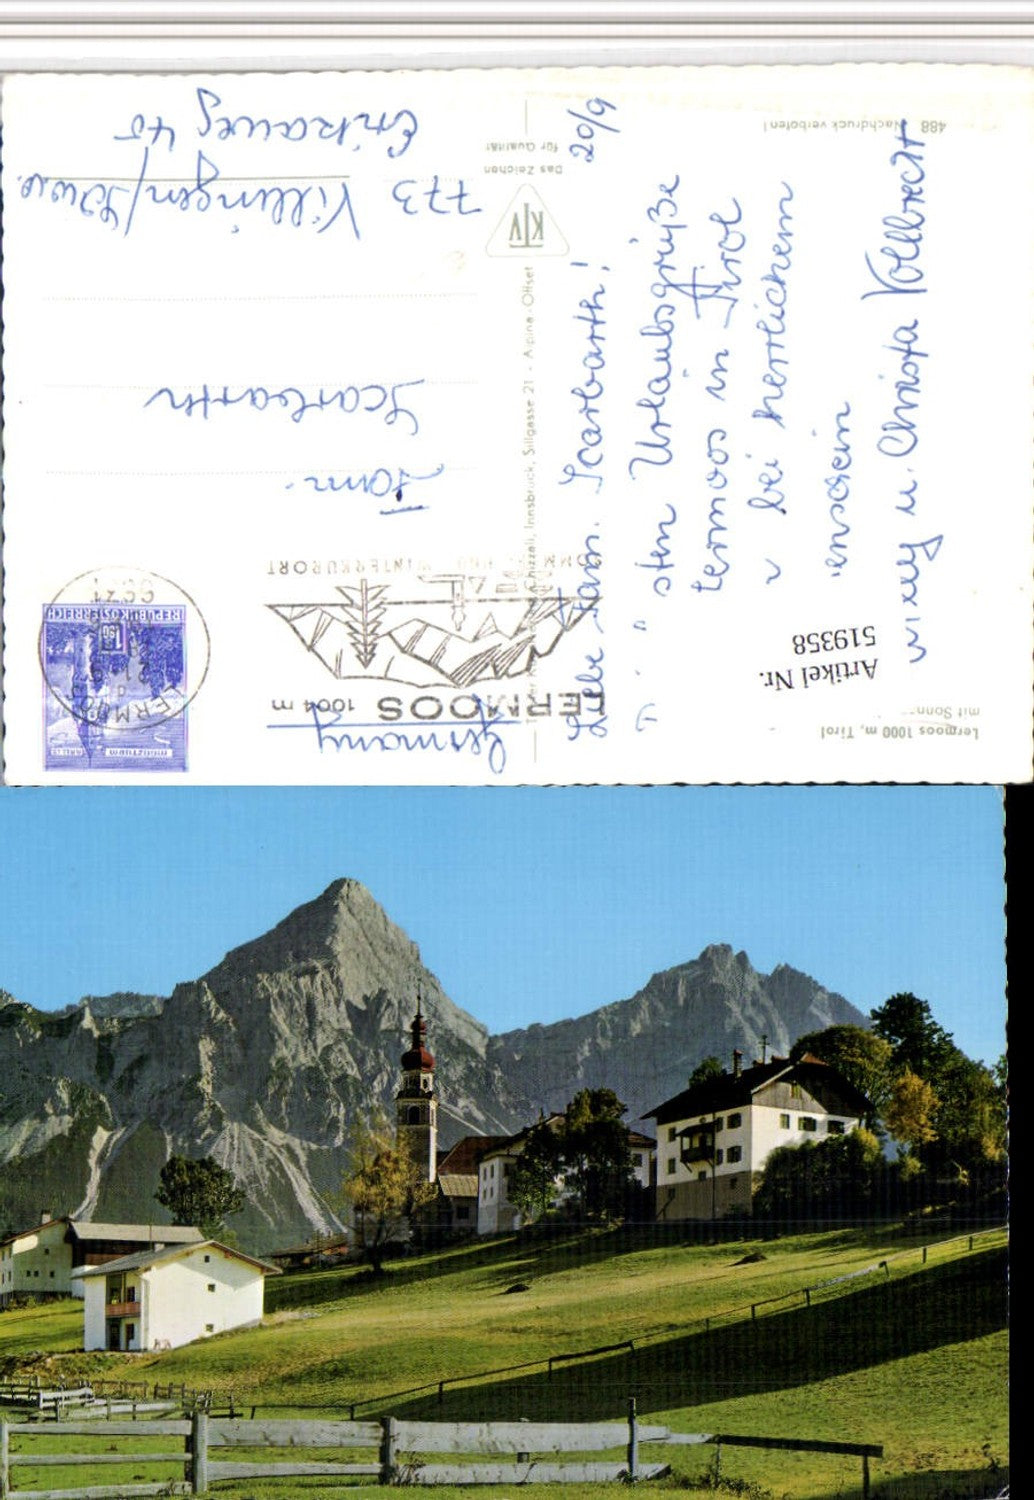 Lermoos 1000 m, Tirol
mit Sonn
488 Nachdruck verboten!
Artikel Nr.
519358
20/9
Liebe Fam. Scarbarth!
sten Urlaubsgrüße
Lermoos in Tirol
bei herrlichem
enschein
u. Christa Vollbrecht
Das Zeichen
für Qualität
KTV
Chizzali, Innsbruck, Sillgasse 21 - Alpina-Offset
LERMOOS 1004 m
SOMMER- UND WINTERKURORT
REPUBLIK ÖSTERREICH
1.50
MÜNZTURM
Fam.
Scarbarth
773 Villingen/Schw.
45
Germany